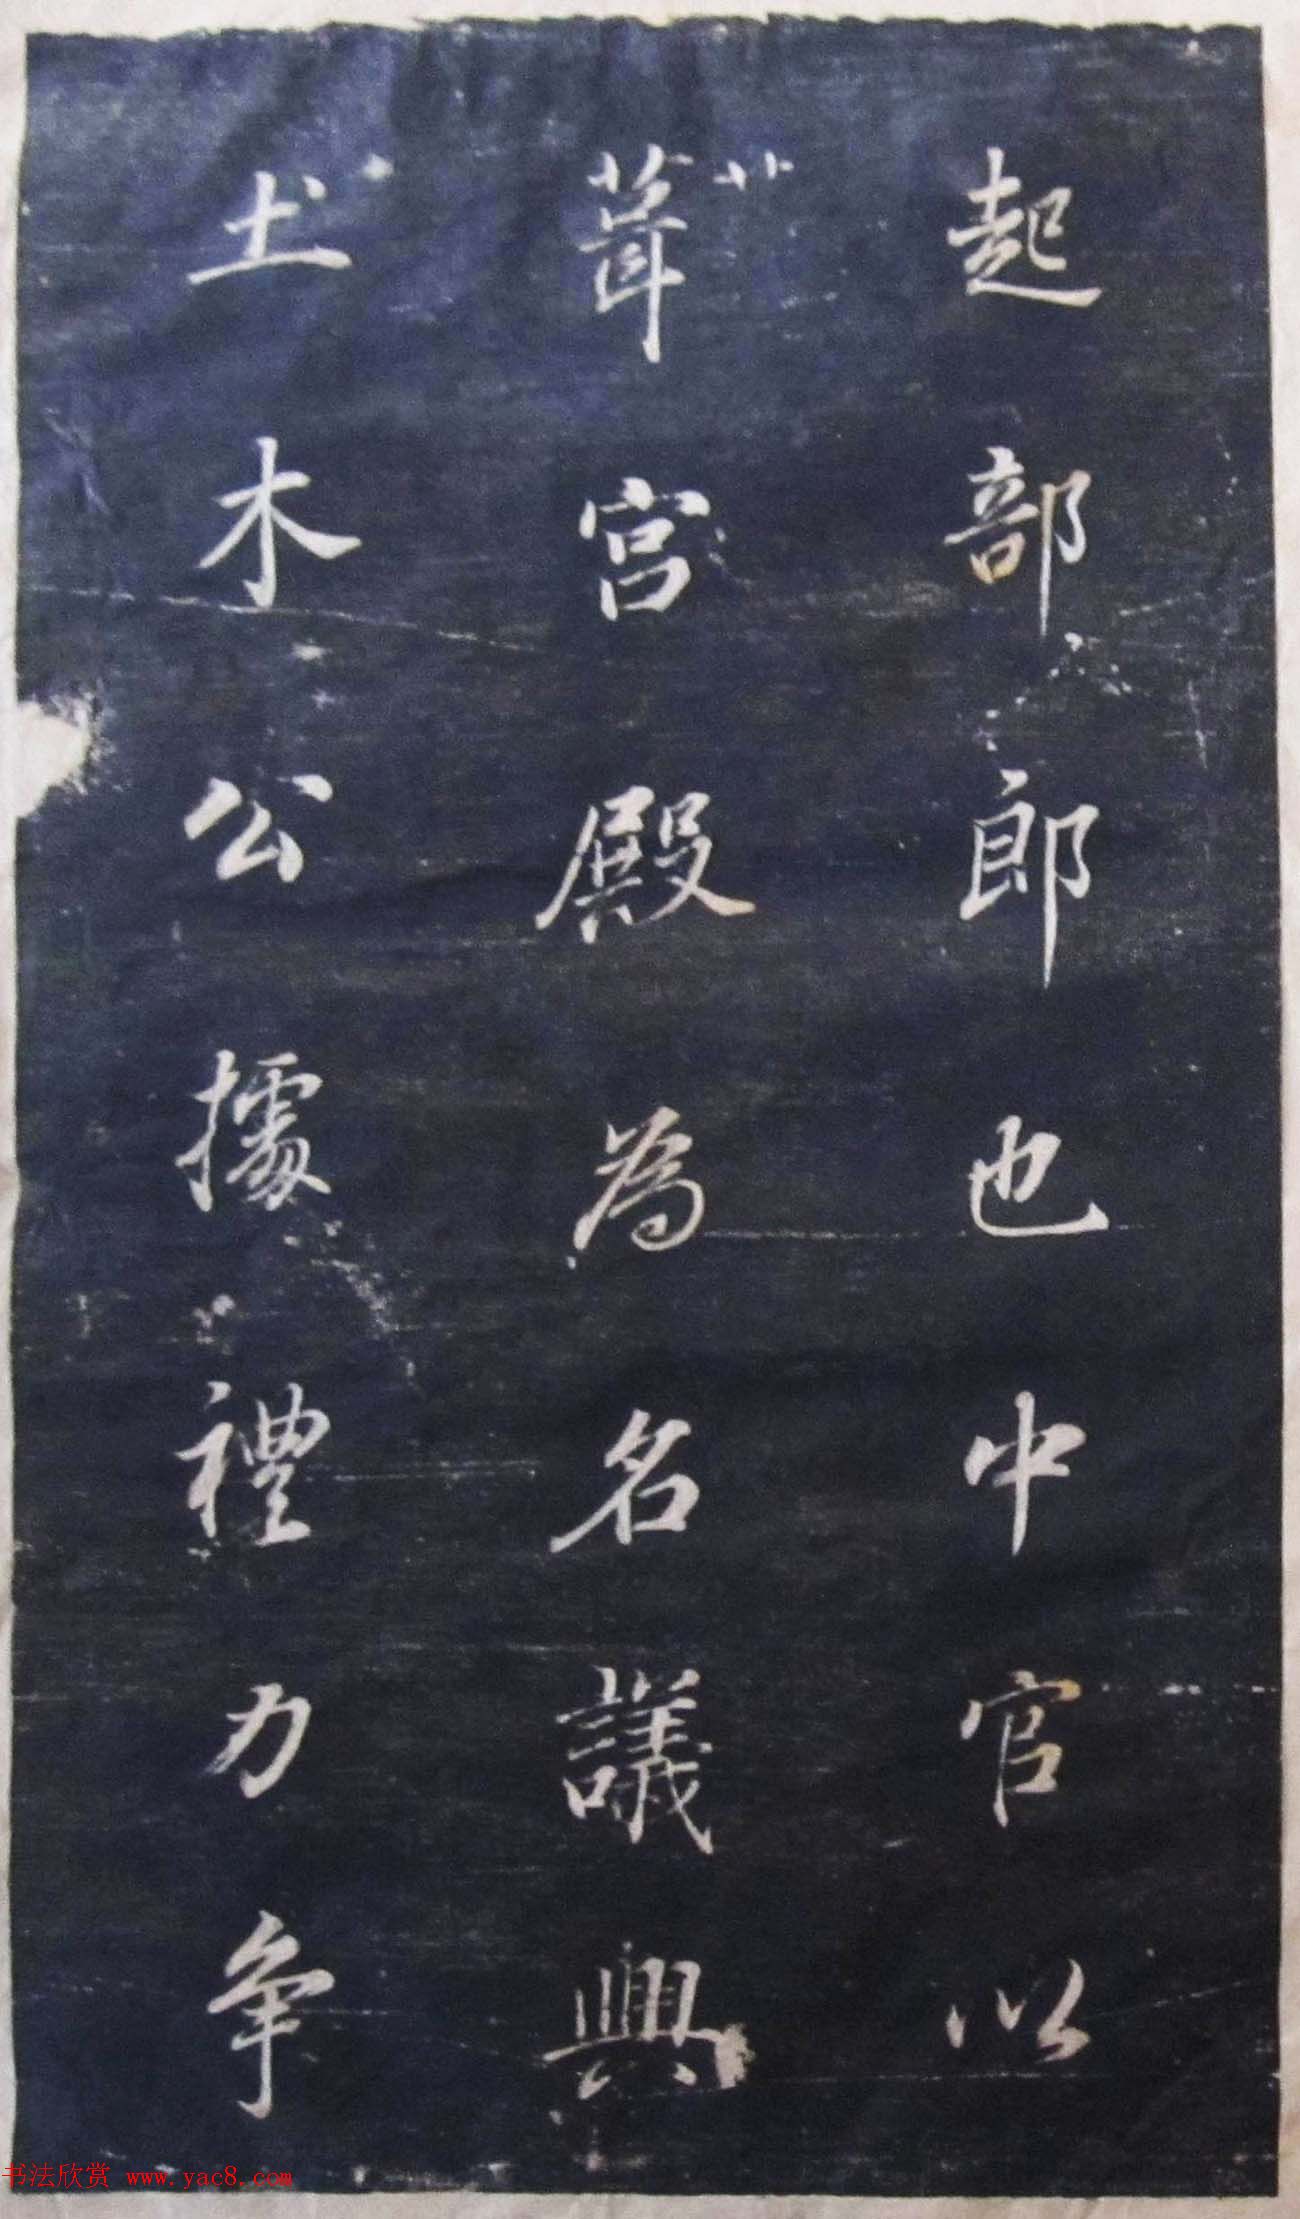 起部郎也中官以
葺宮殿為名議興
土木公據禮力争
书法欣赏 www.yac8.com